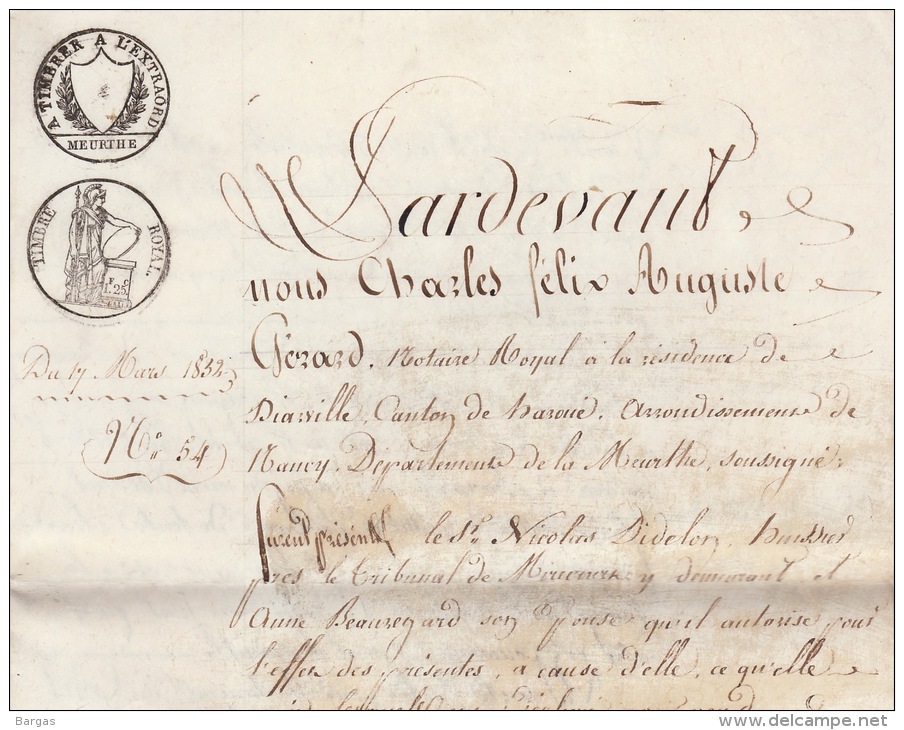 A TIMBRER A L'EXTRAORD
MEURTHE
TIMBRE ROYAL
1 F. 25 C
Du 17 Mars 1832
N° 54
Pardevant
nous Charles félix Auguste
Gérard, Notaire Royal à la résidence de
Diarville, Canton de haroué, Arrondissement de
Nancy, Département de la Meurthe, soussigné;
furent présents le Sr. Nicolas Didelon, huissier
près le tribunal de Mirecourt y demeurant et
Anne Beauregard son épouse qu'il autorise pour
l'effet des présentes, a cause d'elle, ce qu'elle
Bargas
delcampe.net